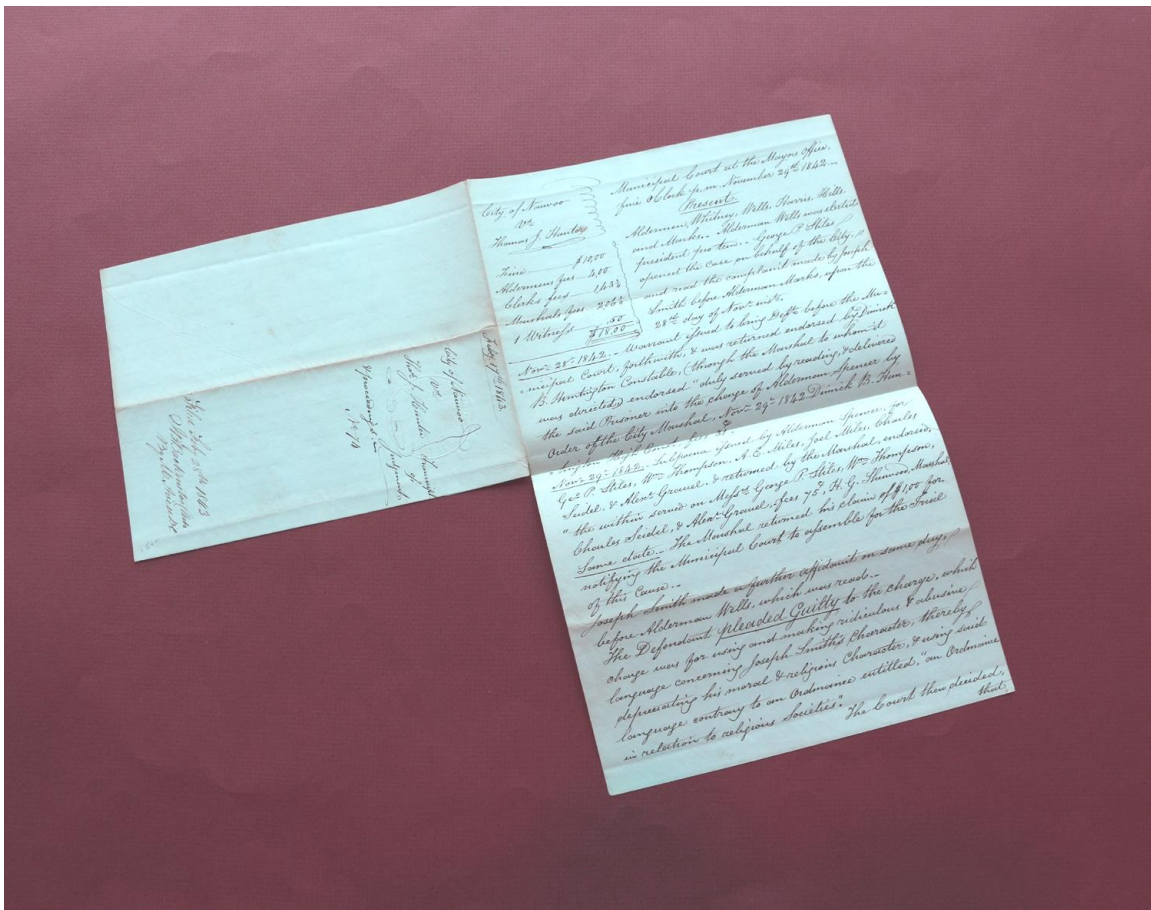 City of Nauvoo
vs.
Thomas J. Hunter
Fine $10,00
Aldermens fees 4,00
Clerks fees 1,43¾
Marshals fees 2,06¼
1 Witness ,50
$18.00
Municipal Court at the Mayors Office,
five o'Clock p.m. November 29th 1842.
Present
Aldermen, Whitney, Wells, Harris, Hills,
and Marks. Alderman Wells was elected
president pro tem. George P. Stiles
opened the case on behalf of the City.
and read the complaint made by Joseph
Smith before Alderman Marks, upon the
28th day of Novr. inst.
Novr. 28th 1842. Warrant issued to bring Deft. before the Mu-
-nicipal Court, forthwith, & was returned endorsed by Dimick
B. Huntington Constable, (through the Marshal to whom it
was directed,) endorsed "duly served by reading, & delivered
the said Prisoner into the charge of Alderman Spencer by
Order of the City Marshal, Novr. 29th 1842 Dimick B. Hun-
-tington
Novr. 29th 1842. Subpoena issued by Alderman Spencer, for
Geo. P. Stiles, Wm. Thompson, A. E. Miles, Joel Miles, Charles
Seidel, & Alexr. Grauel, & returned by the Marshal endorsed,
"the within served on Messrs. George P. Stiles, Wm. Thompson,
Charles Seidel, & Alexr. Grauel, fees 75, H. G. Sherwood Marshal,
Same date. The Marshal returned his claim of $1,00 for
notifying the Municipal Court to assemble for the Trial
of this Cause.
Joseph Smith made a further affidavit on same day,
before Alderman Wells, which was read.
The Defendant pleaded Guilty to the charge, which
charge was for using and making ridiculous & abusive
language concerning Joseph Smith's Character, thereby
depreciating his moral & religious Character, & using said
language contrary to an Ordinance entitled, "an Ordinance
in relation to religious Societies". The Court then decided,
that
Feby. 17th 1843.
City of Nauvoo
vs.
Thos. J. Hunter
Transcript
of
proceedings in